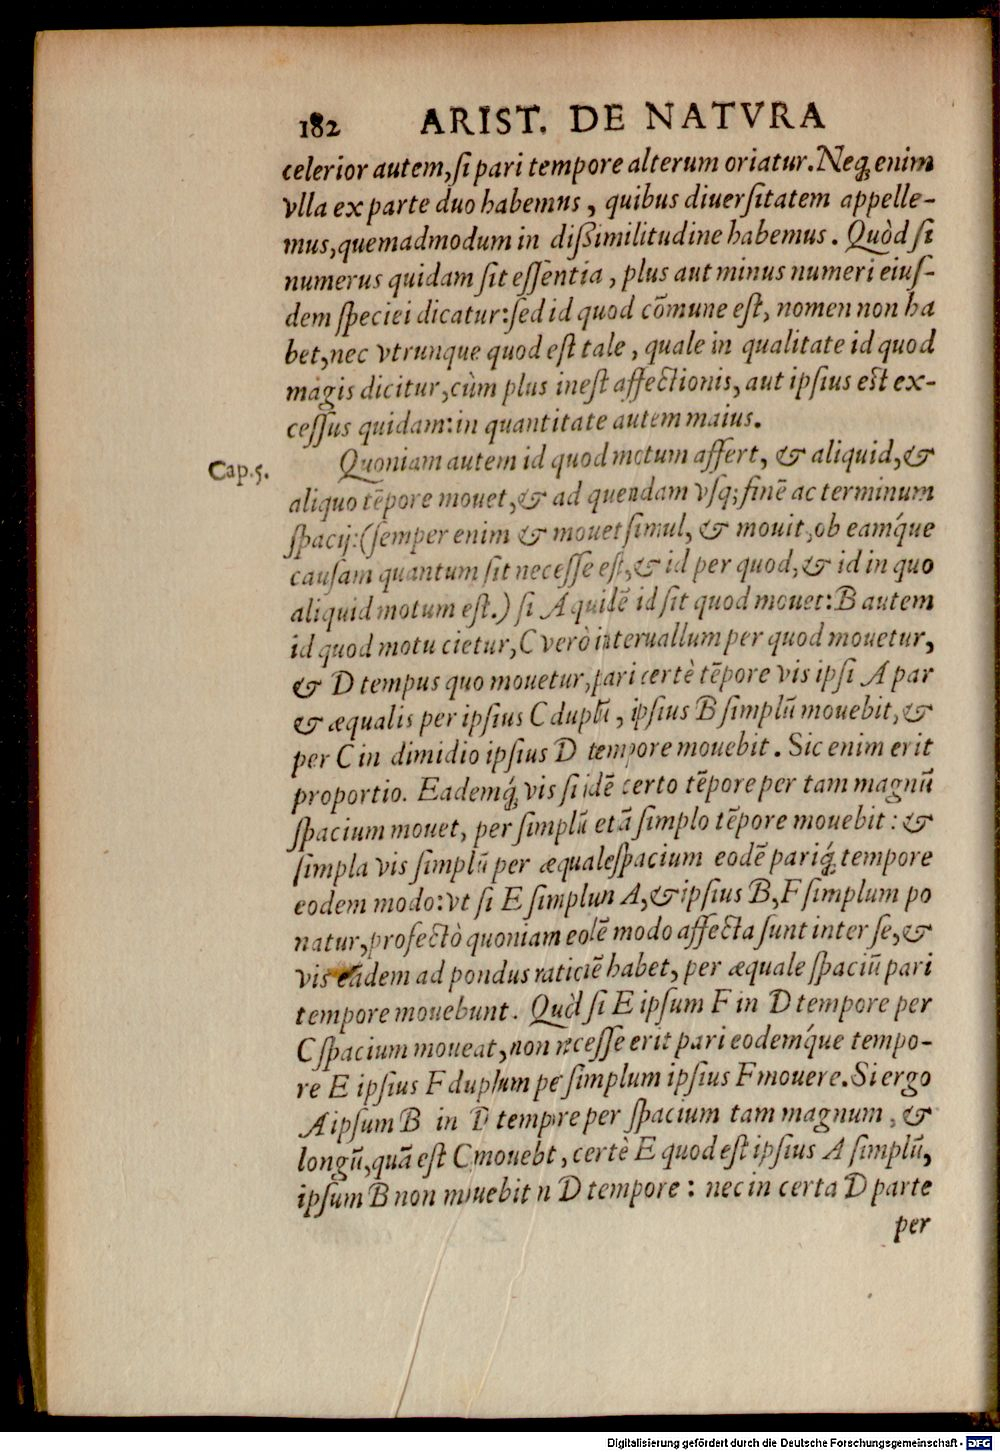 182 ARIST. DE NATVRA
celerior autem, ſi pari tempore alterum oriatur. Neq́; enim
vlla ex parte duo habemus, quibus diuerſitatem appelle-
mus, quemadmodum in diſsimilitudine habemus. Quòd ſi
numerus quidam ſit eſſentia, plus aut minus numeri eiuſ-
dem ſpeciei dicatur: ſed id quod cōmune eſt, nomen non ha
bet, nec vtrunque quod eſt tale, quale in qualitate id quod
magis dicitur, cùm plus ineſt affectionis, aut ipſius est ex-
ceſſus quidam: in quantitate autem maius.
Cap. 5. Quoniam autem id quod motum affert, & aliquid, &
aliquo tēpore mouet, & ad quendam vſq; finē ac terminum
ſpacij: (ſemper enim & mouet ſimul, & mouit, ob eamq́ue
cauſam quantum ſit neceſſe eſt, & id per quod, & id in quo
aliquid motum eſt.) ſi A quidē id ſit quod mouet: B autem
id quod motu cietur, C verò interuallum per quod mouetur,
& D tempus quo mouetur, pari certè tēpore vis ipſi A par
& æqualis per ipſius C duplū, ipſius B ſimplū mouebit, &
per C in dimidio ipſius D tempore mouebit. Sic enim erit
proportio. Eademq́; vis ſi idē certo tēpore per tam magnū
ſpacium mouet, per ſimplū etā ſimplo tēpore mouebit: &
ſimpla vis ſimplū per æquale ſpacium eodē pariq́; tempore
eodem modo: vt ſi E ſimplun A, & ipſius B, F ſimplum po
natur, profectò quoniam eodē modo affecta ſunt inter ſe, &
vis eādem ad pondus rationē habet, per æquale ſpaciū pari
tempore mouebunt. Quòd ſi E ipſum F in D tempore per
C ſpacium moueat, non neceſſe erit pari eodemq́ue tempo-
re E ipſius F duplum per ſimplum ipſius F mouere. Si ergo
A ipſum B in D tempore per ſpacium tam magnum, &
longū, quā eſt C mouebit, certè E quod eſt ipſius A ſimplū,
ipſum B non mouebit in D tempore: nec in certa D parte
per
Digitalisierung gefördert durch die Deutsche Forschungsgemeinschaft - DFG